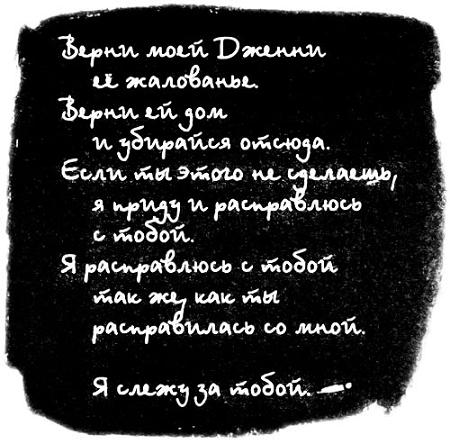 Верни моей Дженни
её жалованье.
Верни ей дом
и убирайся отсюда.
Если ты этого не сделаешь,
я приду и расправлюсь
с тобой.
Я расправлюсь с тобой
так же, как ты
расправилась со мной.
Я слежу за тобой. —•